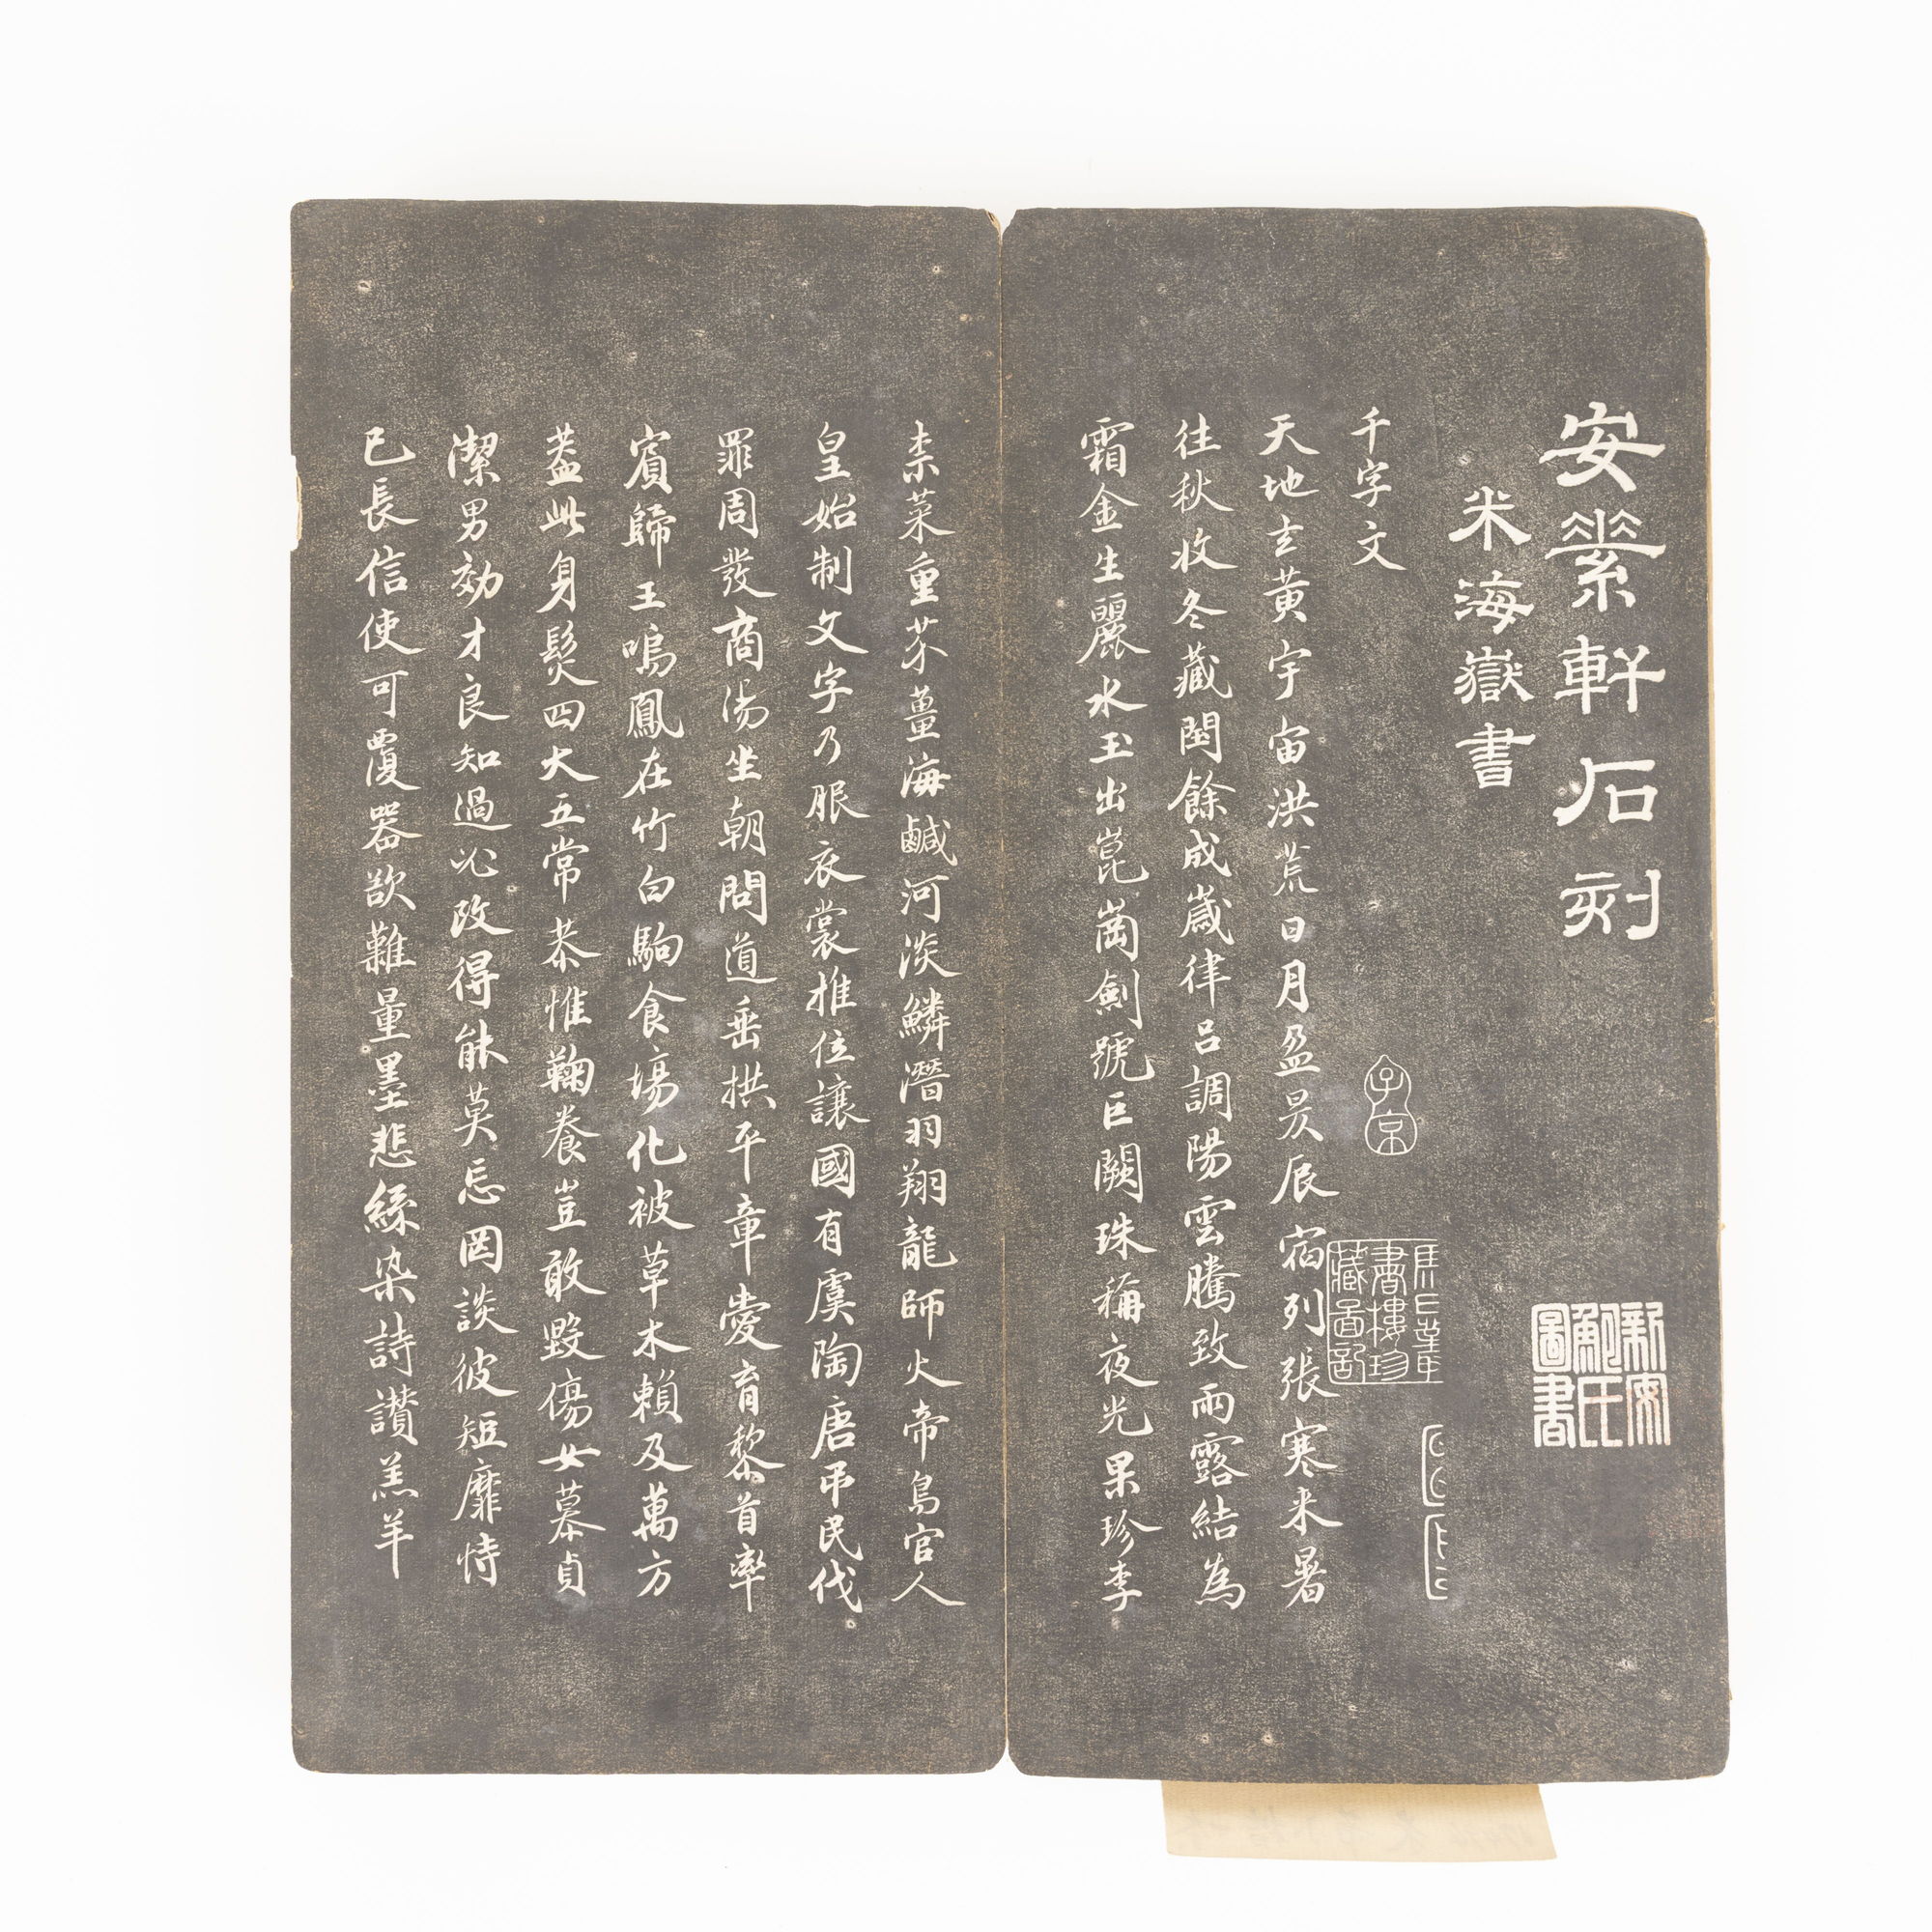 安素軒石刻
米海嶽書
新安鮑氏圖書
千字文
子京
天地玄黃宇宙洪荒日月盈昃辰宿列張寒来暑
往秋收冬藏閏餘成歲律呂調陽雲騰致雨露結為
霜金生麗水玉出崑崗劍號巨闕珠稱夜光果珍李
柰菜重芥薑海鹹河淡鱗潛羽翔龍師火帝鳥官人
皇始制文字乃服衣裳推位讓國有虞陶唐吊民伐
罪周發商湯坐朝問道垂拱平章愛育黎首率
賓歸王鳴鳳在竹白駒食場化被草木賴及萬方
葢此身髮四大五常恭惟鞠養豈敢毀傷女慕貞
潔男効才良知過必改得能莫忘罔談彼短靡恃
已長信使可覆器欲難量墨悲絲染詩讚羔羊